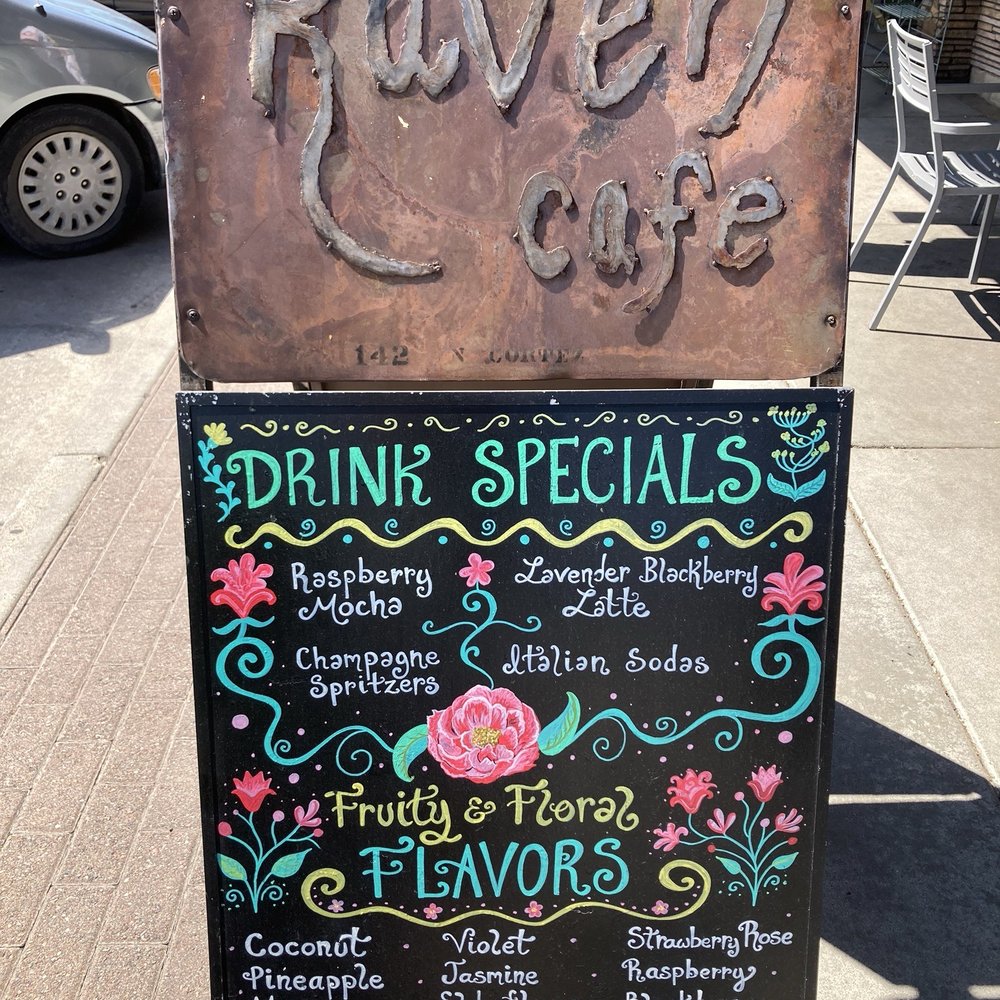 Raven
cafe
142 N CORTEZ
DRINK SPECIALS
Raspberry
Mocha
Lavender Blackberry
Latte
Champagne
Spritzers
Italian Sodas
Fruity & Floral
FLAVORS
Coconut
Violet
Strawberry Rose
Pineapple
Jasmine
Raspberry